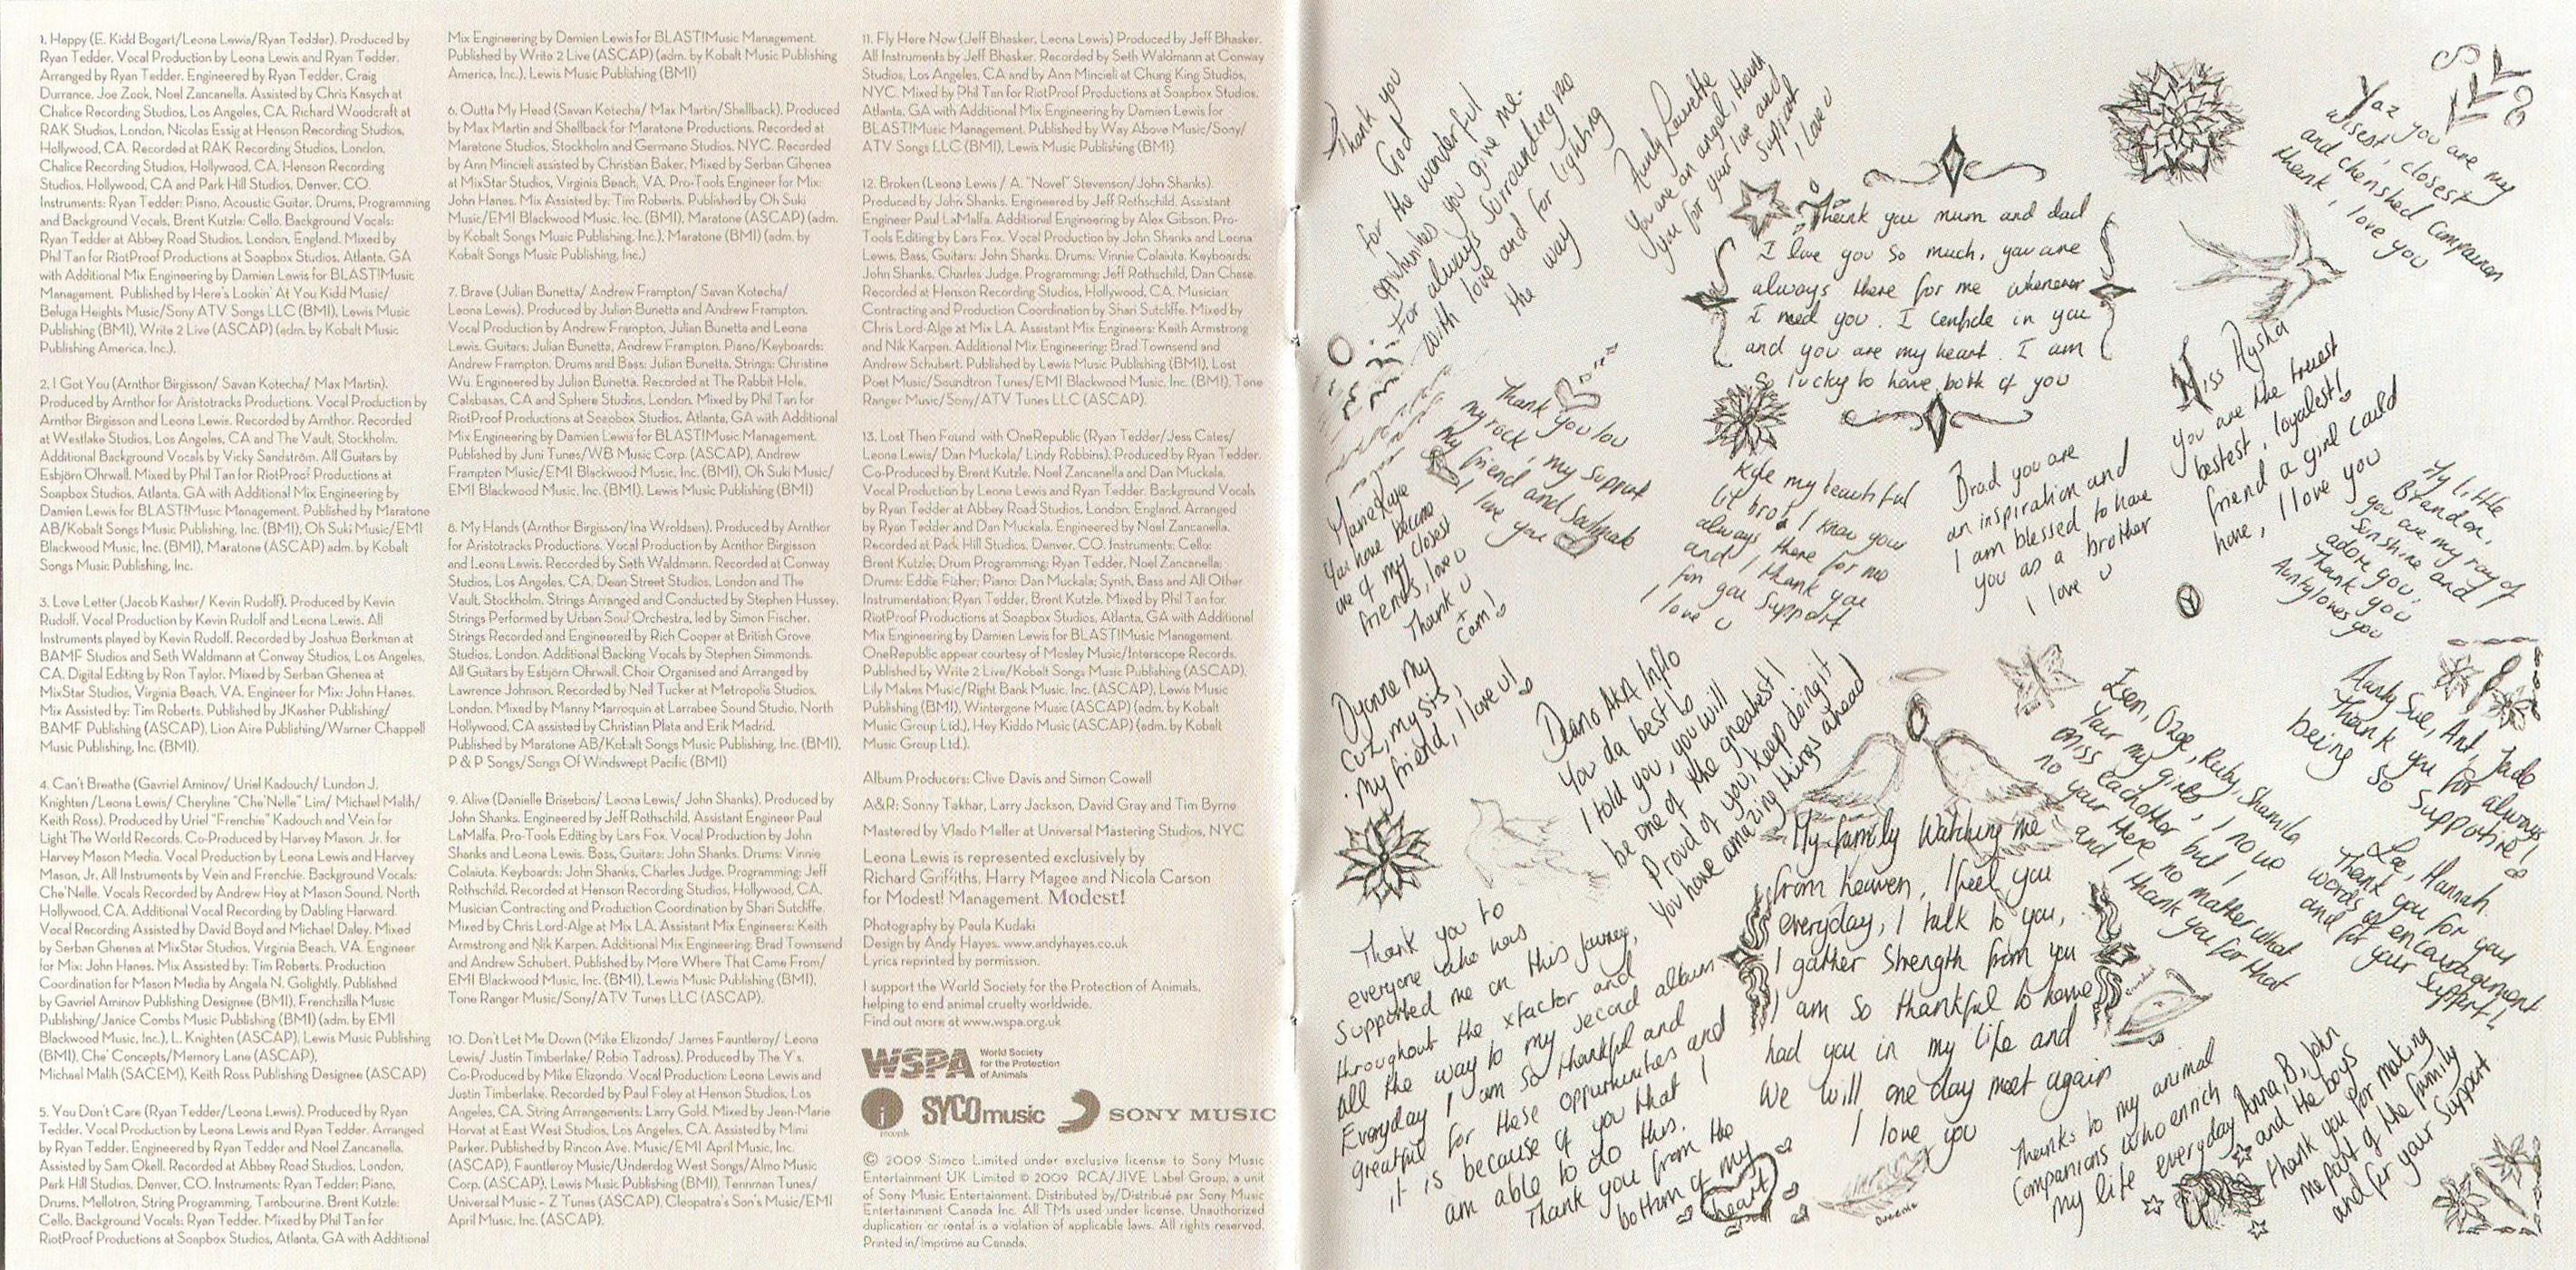 1. Happy (E. Kidd Bogart/Leona Lewis/Ryan Tedder). Produced by
Ryan Tedder. Vocal Production by Leona Lewis and Ryan Tedder.
Arranged by Ryan Tedder. Engineered by Ryan Tedder, Craig
Durrance, Joe Zook, Noel Zancanella. Assisted by Chris Kasych at
Chalice Recording Studios, Los Angeles, CA, Richard Woodcraft at
RAK Studios, London, Nicolas Essig at Henson Recording Studios,
Hollywood, CA. Recorded at RAK Recording Studios, London,
Chalice Recording Studios, Hollywood, CA, Henson Recording
Studios, Hollywood, CA and Park Hill Studios, Denver, CO.
Instruments: Ryan Tedder: Piano, Acoustic Guitar, Drums, Programming
and Background Vocals, Brent Kutzle: Cello. Background Vocals:
Ryan Tedder at Abbey Road Studios, London, England. Mixed by
Phil Tan for RiotProof Productions at Soapbox Studios, Atlanta, GA
with Additional Mix Engineering by Damien Lewis for BLAST!Music
Management. Published by Here's Lookin' At You Kidd Music/
Beluga Heights Music/Sony ATV Songs LLC (BMI), Lewis Music
Publishing (BMI), Write 2 Live (ASCAP) (adm. by Kobalt Music
Publishing America, Inc.).
2. I Got You (Arnthor Birgisson/ Savan Kotecha/ Max Martin).
Produced by Arnthor for Aristotracks Productions. Vocal Production by
Arnthor Birgisson and Leona Lewis. Recorded by Arnthor. Recorded
at Westlake Studios, Los Angeles, CA and The Vault, Stockholm.
Additional Background Vocals by Vicky Sandström. All Guitars by
Esbjörn Öhrwall. Mixed by Phil Tan for RiotProof Productions at
Soapbox Studios, Atlanta, GA with Additional Mix Engineering by
Damien Lewis for BLAST!Music Management. Published by Maratone
AB/Kobalt Songs Music Publishing, Inc. (BMI), Oh Suki Music/EMI
Blackwood Music, Inc. (BMI), Maratone (ASCAP) adm. by Kobalt
Songs Music Publishing, Inc.
3. Love Letter (Jacob Kasher/ Kevin Rudolf). Produced by Kevin
Rudolf. Vocal Production by Kevin Rudolf and Leona Lewis. All
Instruments played by Kevin Rudolf. Recorded by Joshua Berkman at
BAMF Studios and Seth Waldmann at Conway Studios, Los Angeles,
CA. Digital Editing by Ron Taylor. Mixed by Serban Ghenea at
MixStar Studios, Virginia Beach, VA. Engineer for Mix: John Hanes.
Mix Assisted by: Tim Roberts. Published by JKasher Publishing/
BAMF Publishing (ASCAP), Lion Aire Publishing/Warner Chappell
Music Publishing, Inc. (BMI).
4. Can't Breathe (Gavriel Aminov/ Uriel Kadouch/ Lundon J.
Knighten /Leona Lewis/ Cheryline "Che'Nelle" Lim/ Michael Malih/
Keith Ross). Produced by Uriel "Frenchie" Kadouch and Vein for
Light The World Records. Co-Produced by Harvey Mason, Jr. for
Harvey Mason Media. Vocal Production by Leona Lewis and Harvey
Mason, Jr. All Instruments by Vein and Frenchie. Background Vocals:
Che'Nelle. Vocals Recorded by Andrew Hey at Mason Sound, North
Hollywood, CA. Additional Vocal Recording by Dabling Harward.
Vocal Recording Assisted by David Boyd and Michael Daley. Mixed
by Serban Ghenea at MixStar Studios, Virginia Beach, VA. Engineer
for Mix: John Hanes. Mix Assisted by: Tim Roberts. Production
Coordination for Mason Media by Angela N. Golightly. Published
by Gavriel Aminov Publishing Designee (BMI), Frenchzilla Music
Publishing/Janice Combs Music Publishing (BMI) (adm. by EMI
Blackwood Music, Inc.), L. Knighten (ASCAP), Lewis Music Publishing
(BMI), Che' Concepts/Memory Lane (ASCAP),
Michael Malih (SACEM), Keith Ross Publishing Designee (ASCAP)
5. You Don't Care (Ryan Tedder/Leona Lewis). Produced by Ryan
Tedder. Vocal Production by Leona Lewis and Ryan Tedder. Arranged
by Ryan Tedder. Engineered by Ryan Tedder and Noel Zancanella.
Assisted by Sam Okell. Recorded at Abbey Road Studios, London,
Park Hill Studios, Denver, CO. Instruments: Ryan Tedder: Piano,
Drums, Mellotron, String Programming, Tambourine. Brent Kutzle:
Cello. Background Vocals: Ryan Tedder. Mixed by Phil Tan for
RiotProof Productions at Soapbox Studios, Atlanta, GA with Additional
Mix Engineering by Damien Lewis for BLAST!Music Management.
Published by Write 2 Live (ASCAP) (adm. by Kobalt Music Publishing
America, Inc.), Lewis Music Publishing (BMI)
6. Outta My Head (Savan Kotecha/ Max Martin/Shellback). Produced
by Max Martin and Shellback for Maratone Productions. Recorded at
Maratone Studios, Stockholm and Germano Studios, NYC. Recorded
by Ann Mincieli assisted by Christian Baker. Mixed by Serban Ghenea
at MixStar Studios, Virginia Beach, VA. Pro-Tools Engineer for Mix:
John Hanes. Mix Assisted by: Tim Roberts. Published by Oh Suki
Music/EMI Blackwood Music, Inc. (BMI), Maratone (ASCAP) (adm.
by Kobalt Songs Music Publishing, Inc.), Maratone (BMI) (adm. by
Kobalt Songs Music Publishing, Inc.)
7. Brave (Julian Bunetta/ Andrew Frampton/ Savan Kotecha/
Leona Lewis). Produced by Julian Bunetta and Andrew Frampton.
Vocal Production by Andrew Frampton, Julian Bunetta and Leona
Lewis. Guitars: Julian Bunetta, Andrew Frampton. Piano/Keyboards:
Andrew Frampton. Drums and Bass: Julian Bunetta. Strings: Christine
Wu. Engineered by Julian Bunetta. Recorded at The Rabbit Hole,
Calabasas, CA and Sphere Studios, London. Mixed by Phil Tan for
RiotProof Productions at Soapbox Studios, Atlanta, GA with Additional
Mix Engineering by Damien Lewis for BLAST!Music Management.
Published by Juni Tunes/WB Music Corp. (ASCAP), Andrew
Frampton Music/EMI Blackwood Music, Inc. (BMI), Oh Suki Music/
EMI Blackwood Music, Inc. (BMI), Lewis Music Publishing (BMI)
8. My Hands (Arnthor Birgisson/Ina Wroldsen). Produced by Arnthor
for Aristotracks Productions. Vocal Production by Arnthor Birgisson
and Leona Lewis. Recorded by Seth Waldmann. Recorded at Conway
Studios, Los Angeles, CA, Dean Street Studios, London and The
Vault, Stockholm. Strings Arranged and Conducted by Stephen Hussey.
Strings Performed by Urban Soul Orchestra, led by Simon Fischer.
Strings Recorded and Engineered by Rich Cooper at British Grove
Studios, London. Additional Backing Vocals by Stephen Simmonds.
All Guitars by Esbjörn Öhrwall. Choir Organised and Arranged by
Lawrence Johnson. Recorded by Neil Tucker at Metropolis Studios,
London. Mixed by Manny Marroquin at Larrabee Sound Studio, North
Hollywood, CA assisted by Christian Plata and Erik Madrid.
Published by Maratone AB/Kobalt Songs Music Publishing, Inc. (BMI),
P & P Songs/Songs Of Windswept Pacific (BMI)
9. Alive (Danielle Brisebois/ Leona Lewis/ John Shanks). Produced by
John Shanks. Engineered by Jeff Rothschild, Assistant Engineer Paul
LaMalfa. Pro-Tools Editing by Lars Fox. Vocal Production by John
Shanks and Leona Lewis. Bass, Guitars: John Shanks. Drums: Vinnie
Colaiuta. Keyboards: John Shanks, Charles Judge. Programming: Jeff
Rothschild. Recorded at Henson Recording Studios, Hollywood, CA.
Musician Contracting and Production Coordination by Shari Sutcliffe.
Mixed by Chris Lord-Alge at Mix LA. Assistant Mix Engineers: Keith
Armstrong and Nik Karpen. Additional Mix Engineering: Brad Townsend
and Andrew Schubert. Published by More Where That Came From/
EMI Blackwood Music, Inc. (BMI), Lewis Music Publishing (BMI),
Tone Ranger Music/Sony/ATV Tunes LLC (ASCAP).
10. Don't Let Me Down (Mike Elizondo/ James Fauntleroy/ Leona
Lewis/ Justin Timberlake/ Robin Tadross). Produced by The Y's.
Co-Produced by Mike Elizondo. Vocal Production: Leona Lewis and
Justin Timberlake. Recorded by Paul Foley at Henson Studios, Los
Angeles, CA. String Arrangements: Larry Gold. Mixed by Jean-Marie
Horvat at East West Studios, Los Angeles, CA. Assisted by Mimi
Parker. Published by Rincon Ave. Music/EMI April Music, Inc.
(ASCAP), Fauntleroy Music/Underdog West Songs/Almo Music
Corp. (ASCAP), Lewis Music Publishing (BMI), Tennman Tunes/
Universal Music - Z Tunes (ASCAP), Cleopatra's Son's Music/EMI
April Music, Inc. (ASCAP).
11. Fly Here Now (Jeff Bhasker, Leona Lewis) Produced by Jeff Bhasker.
All Instruments by Jeff Bhasker. Recorded by Seth Waldmann at Conway
Studios, Los Angeles, CA and by Ann Mincieli at Chung King Studios,
NYC. Mixed by Phil Tan for RiotProof Productions at Soapbox Studios,
Atlanta, GA with Additional Mix Engineering by Damien Lewis for
BLAST!Music Management. Published by Way Above Music/Sony/
ATV Songs LLC (BMI), Lewis Music Publishing (BMI).
12. Broken (Leona Lewis / A. "Novel" Stevenson/John Shanks).
Produced by John Shanks. Engineered by Jeff Rothschild, Assistant
Engineer Paul LaMalfa. Additional Engineering by Alex Gibson. Pro-
Tools Editing by Lars Fox. Vocal Production by John Shanks and Leona
Lewis. Bass, Guitars: John Shanks. Drums: Vinnie Colaiuta. Keyboards:
John Shanks, Charles Judge. Programming: Jeff Rothschild, Dan Chase.
Recorded at Henson Recording Studios, Hollywood, CA. Musician
Contracting and Production Coordination by Shari Sutcliffe. Mixed by
Chris Lord-Alge at Mix LA. Assistant Mix Engineers: Keith Armstrong
and Nik Karpen. Additional Mix Engineering: Brad Townsend and
Andrew Schubert. Published by Lewis Music Publishing (BMI), Lost
Poet Music/Soundtron Tunes/EMI Blackwood Music, Inc. (BMI), Tone
Ranger Music/Sony/ATV Tunes LLC (ASCAP).
13. Lost Then Found with OneRepublic (Ryan Tedder/Jess Cates/
Leona Lewis/ Dan Muckala/ Lindy Robbins). Produced by Ryan Tedder.
Co-Produced by Brent Kutzle, Noel Zancanella and Dan Muckala.
Vocal Production by Leona Lewis and Ryan Tedder. Background Vocals
by Ryan Tedder at Abbey Road Studios, London, England. Arranged
by Ryan Tedder and Dan Muckala. Engineered by Noel Zancanella.
Recorded at Park Hill Studios, Denver, CO. Instruments: Cello:
Brent Kutzle; Drum Programming: Ryan Tedder, Noel Zancanella;
Drums: Eddie Fisher; Piano: Dan Muckala; Synth, Bass and All Other
Instrumentation: Ryan Tedder, Brent Kutzle. Mixed by Phil Tan for
RiotProof Productions at Soapbox Studios, Atlanta, GA with Additional
Mix Engineering by Damien Lewis for BLAST!Music Management.
OneRepublic appear courtesy of Mosley Music/Interscope Records.
Published by Write 2 Live/Kobalt Songs Music Publishing (ASCAP),
Lily Makes Music/Right Bank Music, Inc. (ASCAP), Lewis Music
Publishing (BMI), Wintergone Music (ASCAP) (adm. by Kobalt
Music Group Ltd.), Hey Kiddo Music (ASCAP) (adm. by Kobalt
Music Group Ltd.).
Album Producers: Clive Davis and Simon Cowell
A&R: Sonny Takhar, Larry Jackson, David Gray and Tim Byrne
Mastered by Vlado Meller at Universal Mastering Studios, NYC
Leona Lewis is represented exclusively by
Richard Griffiths, Harry Magee and Nicola Carson
for Modest! Management. Modest!
Photography by Paula Kudaki
Design by Andy Hayes. www.andyhayes.co.uk
Lyrics reprinted by permission.
I support the World Society for the Protection of Animals,
helping to end animal cruelty worldwide.
Find out more at www.wspa.org.uk
WSPA World Society
for the Protection
of Animals
i records SYCOmusic SONY MUSIC
© 2009 Simco Limited under exclusive license to Sony Music
Entertainment UK Limited ℗ 2009 RCA/JIVE Label Group, a unit
of Sony Music Entertainment. Distributed by/Distribué par Sony Music
Entertainment Canada Inc. All TMs used under license. Unauthorized
duplication or rental is a violation of applicable laws. All rights reserved.
Printed in/Imprimé au Canada.
Thank you
God
for the wonderful
oppurtunities you give me.
For always surrounding me
with love and for lighting
the way
Aunty Laurette
You are an angel, thank
you for your love and
support
I love U
Thank you mum and dad
I love you so much, you are
always there for me whenever
I need you. I confide in you
and you are my heart. I am
so lucky to have both of you
Yaz you are my
wisest, closest
and cherished companion
thank, love you
Miss Aysha
you are the truest
bestest, loyalest!
friend a girl could
have, I love you
Thank you Lou
my rock, my support
my friend and soulmate
I love you
Kyle my beautiful
lil bro! I know your
always there for me
and I thank you
for you support
I love U
Brad you are
an inspiration and
I am blessed to have
you as a brother
I love U
My little
Brandon,
you are my ray of
sunshine and I
adore you,
Thank you
Aunty loves you
You have become
one of my closest
friends, love U
Thank U
+
Cam!
Dyanne my
cuz, my sis,
my friend, I love u!
Deano AKA Inflo
You da best lo
I told you, you will
be one of the greatest!
Proud of you, keep doing it
You have amazing things ahead
Ozge, Ruby, Shamila
Your my girls, I no we
miss eachother but I
no your there no matter what
and I thank you for that
Aunty Sue, Ant, Jade
Thank you for always
being so supportive!
Lee, Hannah
Thank you for your
words of encouragement
and for your support!
My family watching me
from heaven, I feel you
everyday, I talk to you,
I gather strength from you
I am so thankful to have
had you in my life and
we will one day meet again
I love you
Thank you to
everyone who has
supported me on this journey,
throughout the xfactor and
all the way to my second album
Everyday I am so thankful and
greatful for these oppurtunities and
it is because of you that I
am able to do this.
Thank you from the
bottom of my
heart
Thanks to my animal
companions who enrich
my life everyday
Anna, B, John
and the boys
thank you for making
me part of the family
and for your support